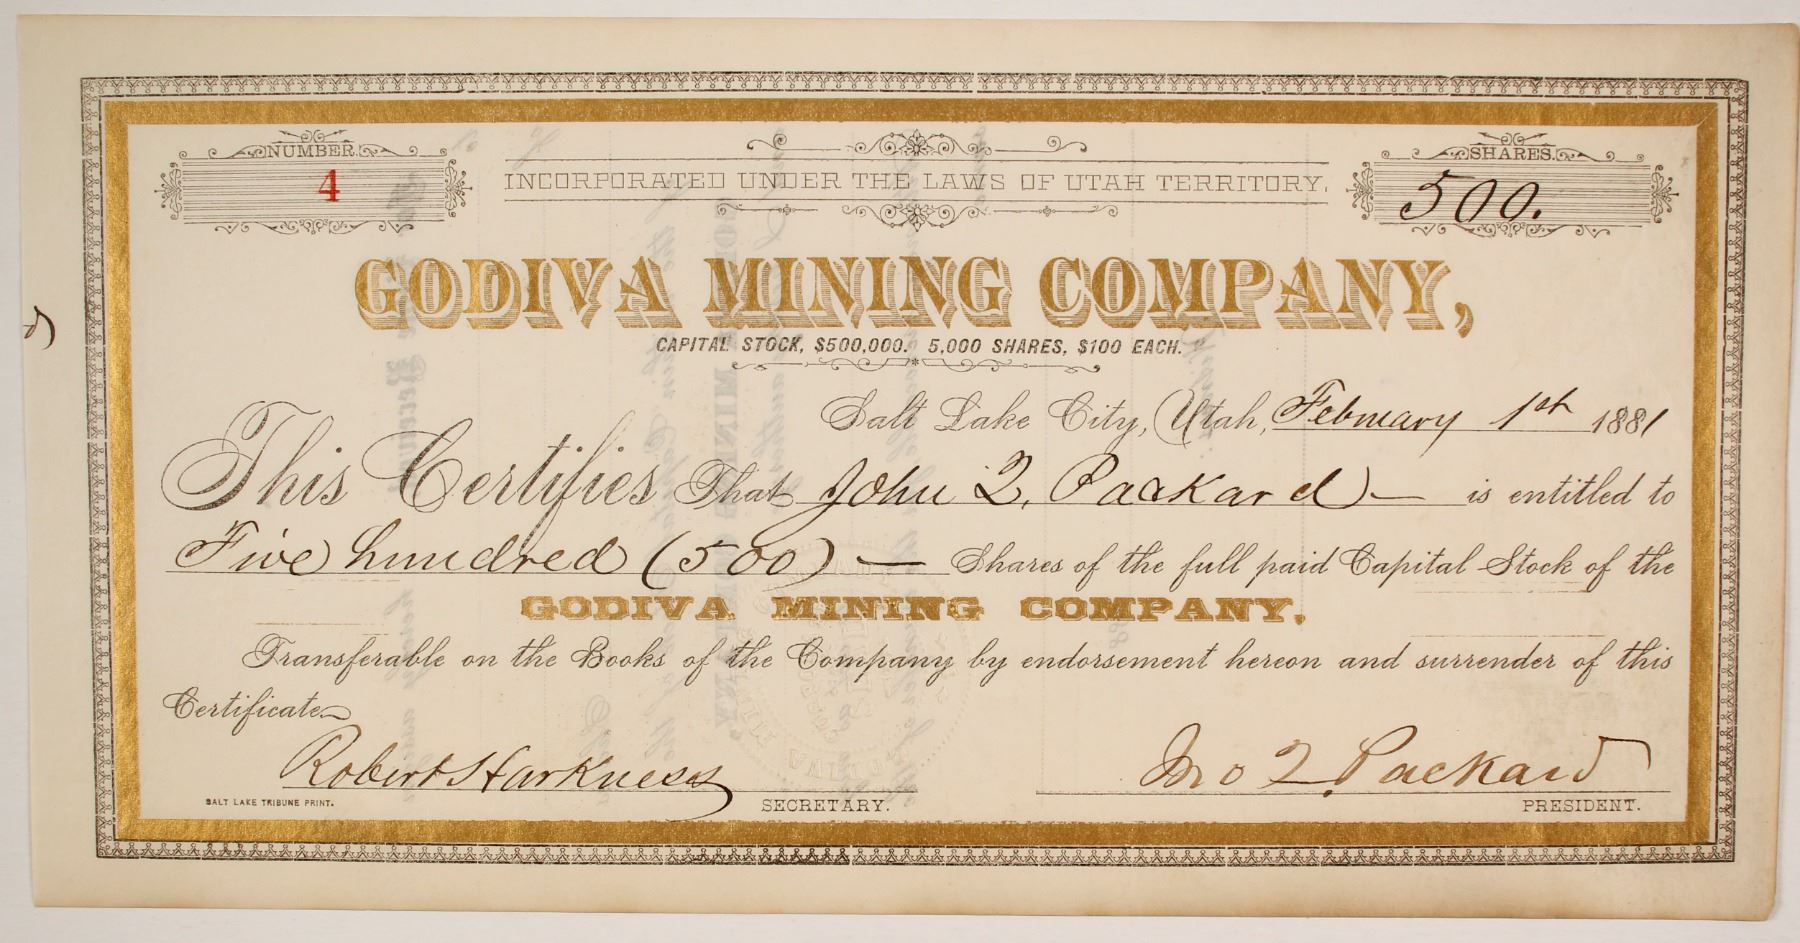 NUMBER
4
INCORPORATED UNDER THE LAWS OF UTAH TERRITORY.
SHARES.
500.
GODIVA MINING COMPANY,
CAPITAL STOCK, $500,000. 5,000 SHARES, $100 EACH.
Salt Lake City, Utah, February 1st 1881
This Certifies That John Q. Packard — is entitled to
Five hundred (500) — Shares of the full paid Capital Stock of the
GODIVA MINING COMPANY.
Transferable on the Books of the Company by endorsement hereon and surrender of this
Certificate
Robert Harkness
Jno Q. Packard
SALT LAKE TRIBUNE PRINT.
SECRETARY.
PRESIDENT.